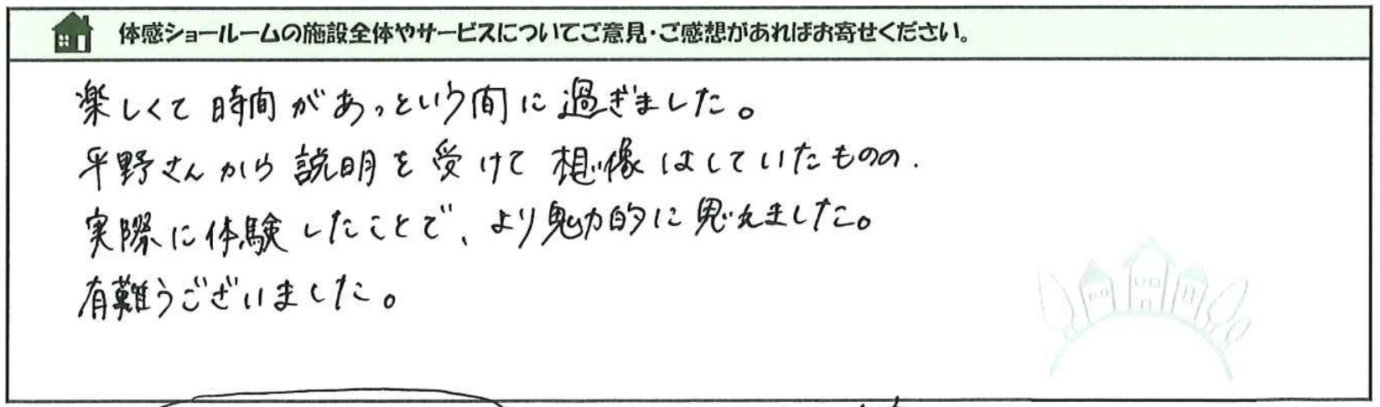 体感ショールームの施設全体やサービスについてご意見・ご感想があればお寄せください。
楽しくて時間があっという間に過ぎました。
平野さんから説明を受けて想像はしていたものの、
実際に体験したことで、より魅力的に思えました。
有難うございました。